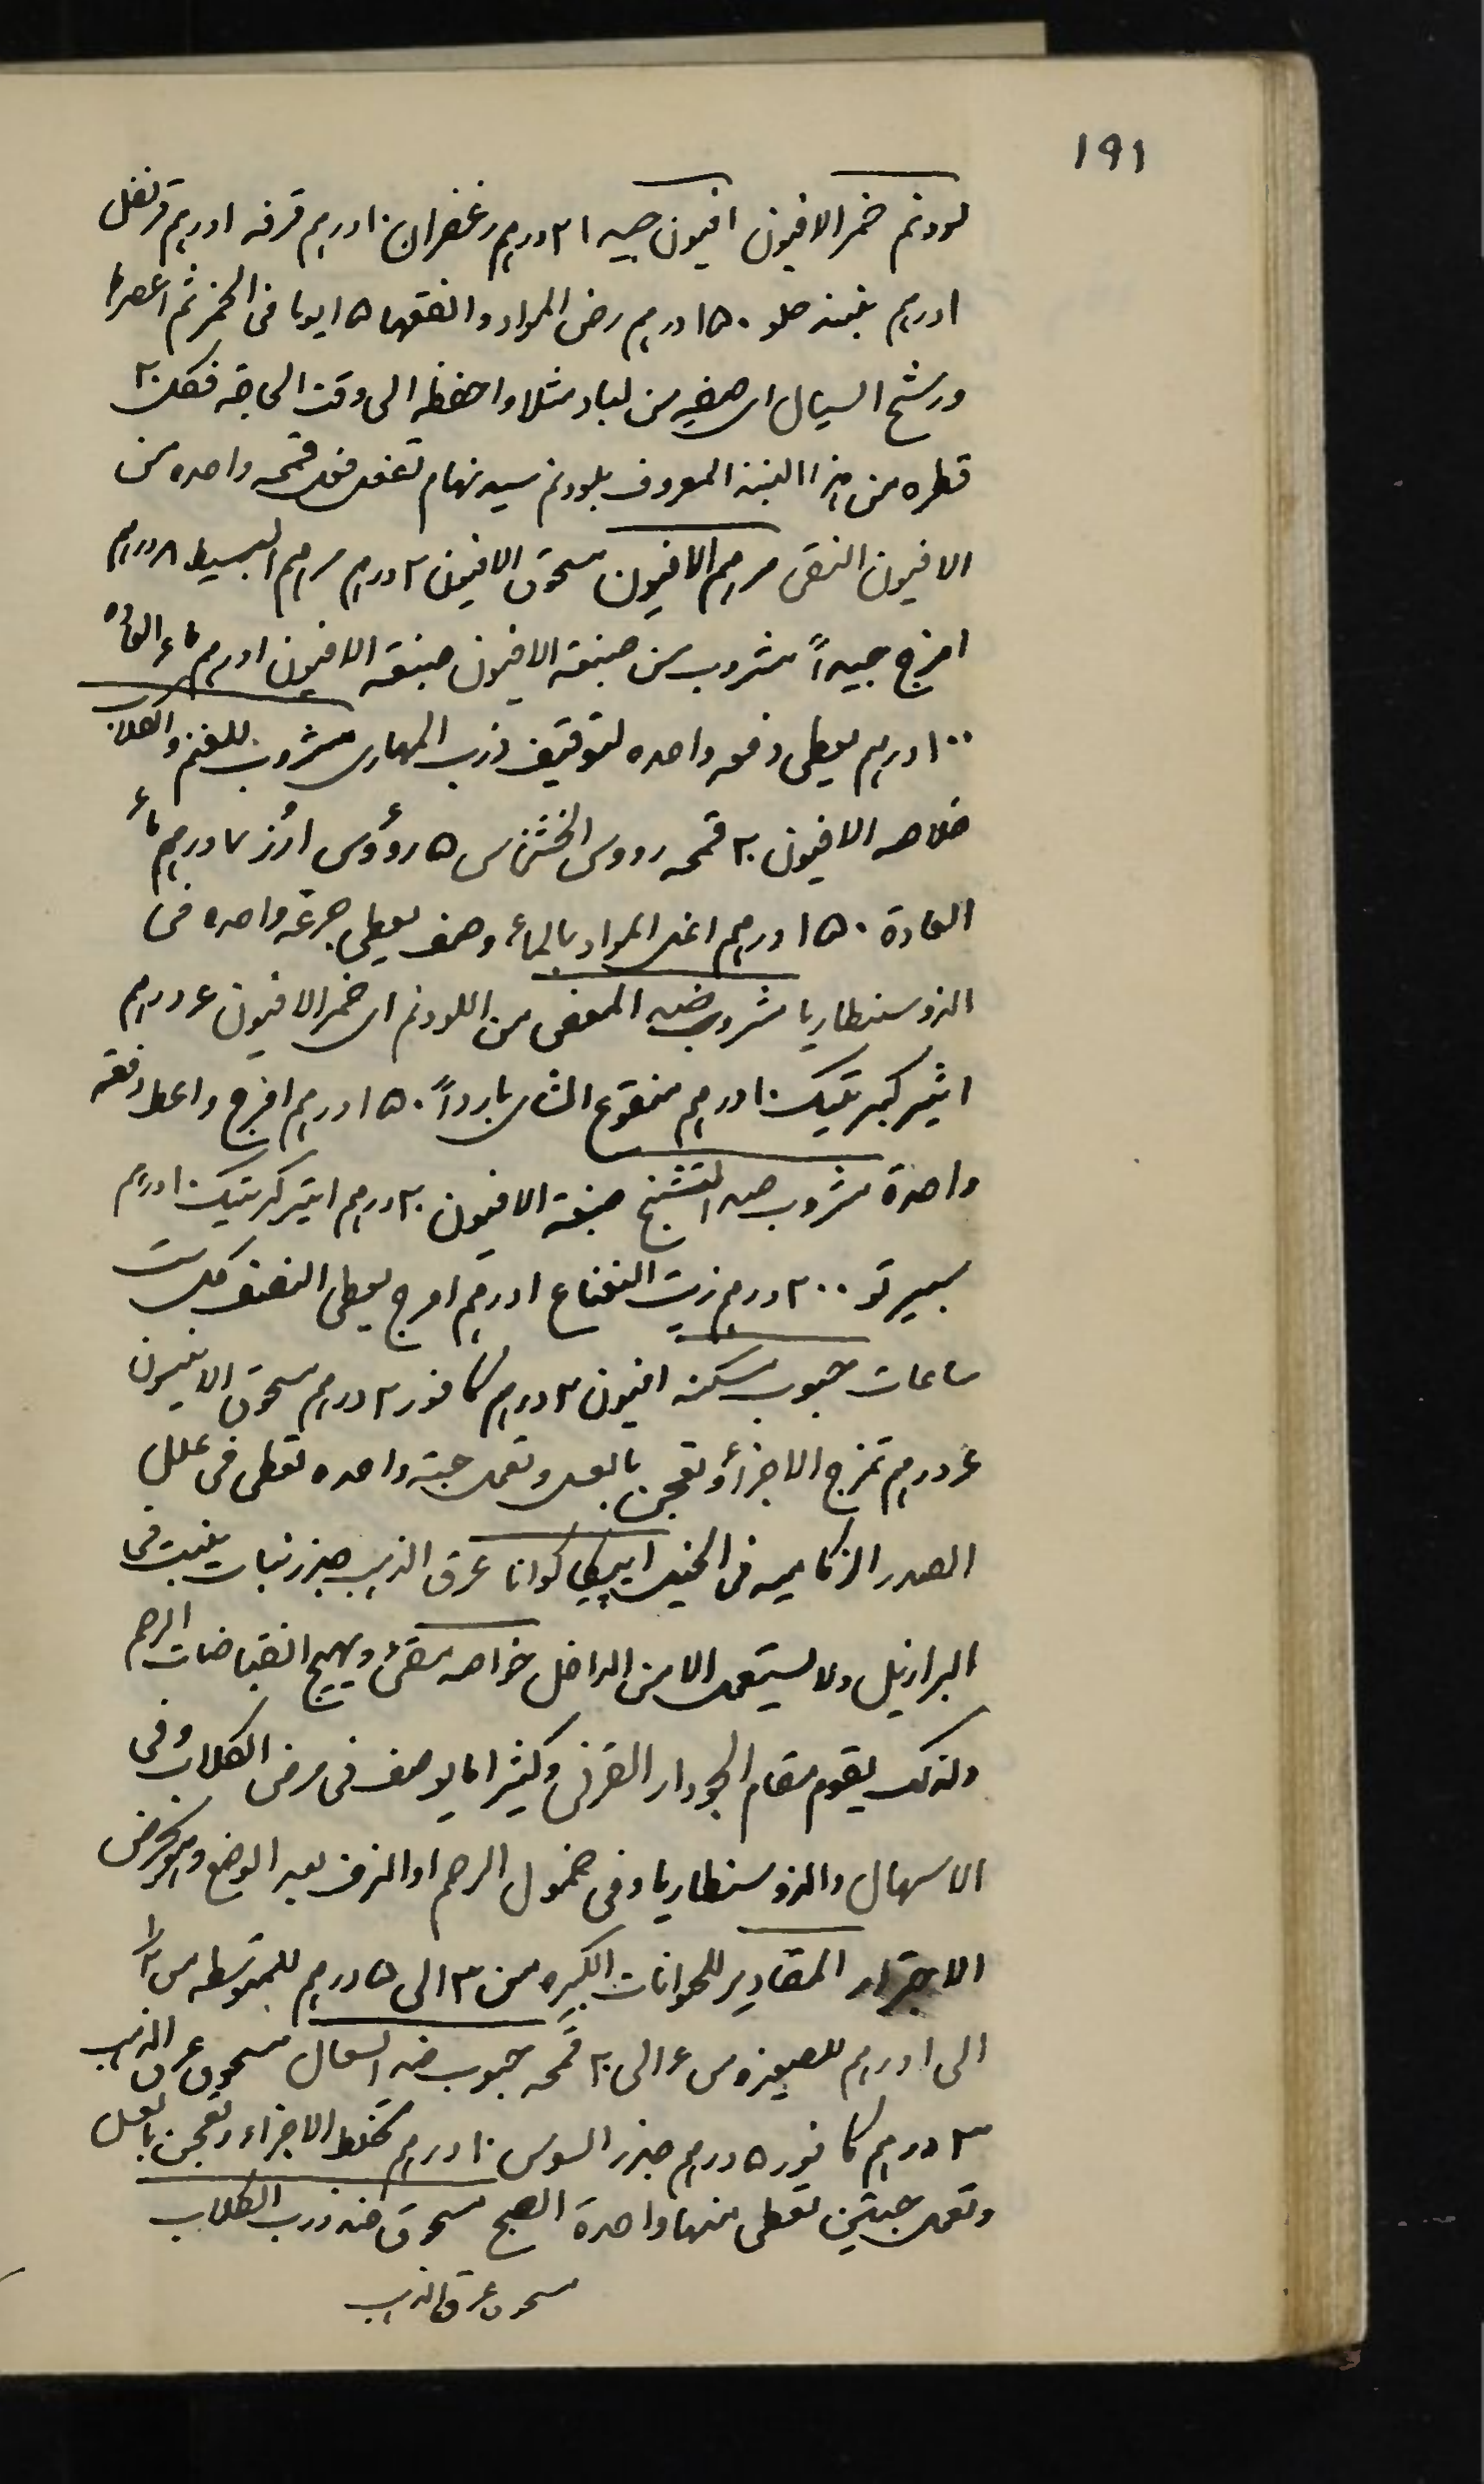 ١٩١
لودنم خمر الافيون افيون جيد ١٢ درهم زعفران ١٠ درهم قرفه ١ درهم قرنفل
١ درهم نبيذ حلو ١٥٠ درهم رض المواد وانقعها ١٥ يوما فى الخمر ثم اعصرها
ورشح السيال اى صفيه من لباد مثلا واحفظه الى وقت الحاجه فكل ٢٠
قطره من هذا النبيذ المعروف بلودنم سيدنهام تفعل فعل قمحه واحده من
الافيون النقى مرهم الافيون مسحوق الافيون ٢ درهم مرهم البسيط ٨ درهم
امزج جيداً مشروب من صبغة الافيون صبغة الافيون ١ درهم ماء الغادة
١٠٠ درهم يعطى دفعه واحده لتوقيف ذرب المهارى مشروب للغنم والكلاب
خلاصه الافيون ٢٠ قمحه رووس الخشخاش ٥ رؤوس ارُز ٧ درهم ماء
العادة ١٥٠ درهم اغلى المواد بالماء وصف يعطى جرعه واحده فى
الدوسنطاريا مشروب ضد المغص من اللودنم اى خمر الافيون ٤ درهم
اثير كبرتيك ١٠ درهم منقوع الشاى بارداً ١٥٠ درهم امزج واعط دفعه
واحدة مشروب ضد التشنج صبغة الافيون ٢٠ درهم ايتير كبرتيك ١٠ درهم
سبيرتو ٢٠٠ درهم زيت النعناع ١ درهم امزج يعطى النصف كل ست
ساعات حبوب مسكنه افيون ٢ درهم كافور ٢ درهم مسحوق الانيسون
٤ درهم تمزج الاجزأ وتعجن بالعسل وتعمل حبة واحده تعطى فى علل
الصدر الزكاميه فى الخيل ايپيكاكوانا عرق الذهب جذر نبات ينبت فى
البرازيل ولا يستعمل الا من الداخل خواصه مقئ ويهيج انقباضات الرحم
ولذلك يقوم مقام الجودار القرنى وكثيرا ما يوصف فى مرض الكلاب وفى
الاسهال والدوسنطاريا وفى خمول الرحم او النزف بعد الوضع وهو يحرض
الاجترار المقادير للحوانات الكبيره من ٣ الى ٥ درهم للمتوسطه من ١/٢
الى ١ درهم للصغيره من ٤ الى ٢٠ قمحه حبوب ضد السعال مسحوق عرق الذهب
٣ درهم كافور ٥ درهم جذر السوس ١٠ درهم تخلط الاجزاء وتعجن بالعسل
وتعمل حبتين تعطى منها واحدة الصبح مسحوق ضد ذرب الكلاب
مسحوق عرق الذهب